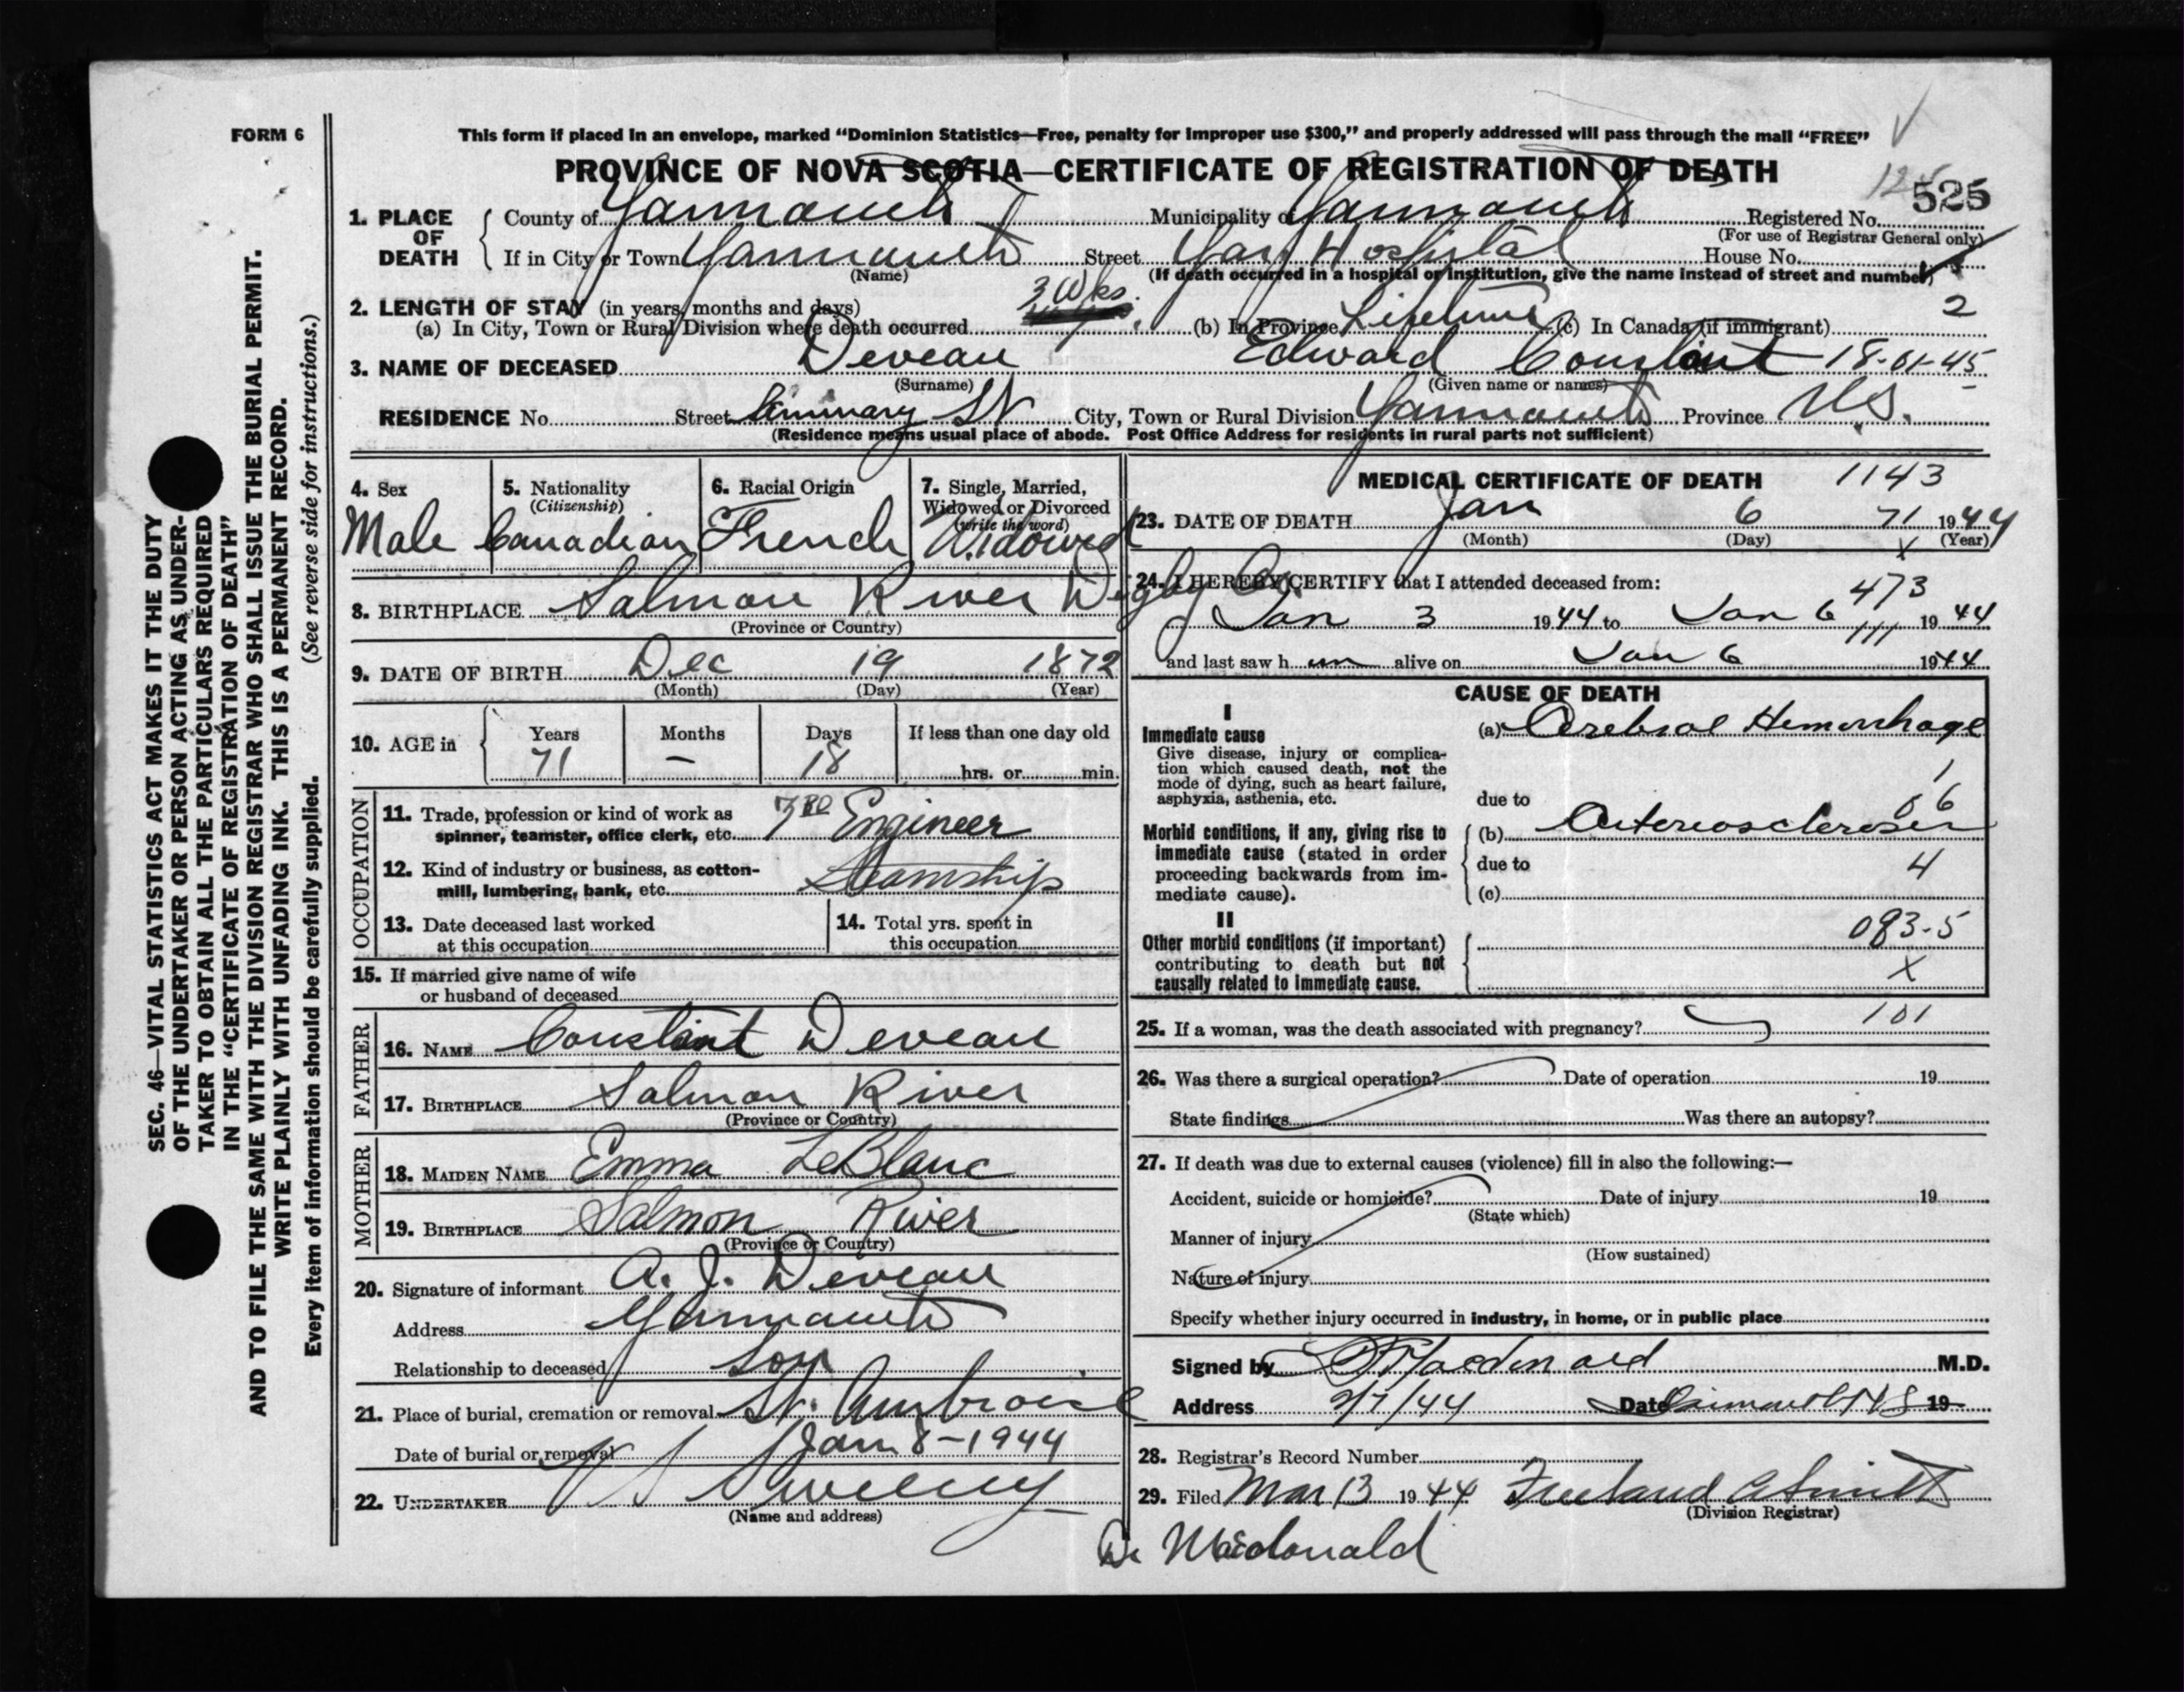 FORM 6
This form if placed in an envelope, marked “Dominion Statistics—Free, penalty for improper use $300,” and properly addressed will pass through the mail “FREE”
PROVINCE OF NOVA SCOTIA—CERTIFICATE OF REGISTRATION OF DEATH
1. PLACE OF DEATH
County of Yarmouth Municipality of Yarmouth Registered No. 525
(For use of Registrar General only)
If in City or Town Yarmouth Street Yar Hospital House No.
(Name) (If death occurred in a hospital or institution, give the name instead of street and number)
2. LENGTH OF STAY (in years, months and days) 3 Wks.
(a) In City, Town or Rural Division where death occurred (b) In Province Lifetime (c) In Canada (if immigrant) 2
3. NAME OF DECEASED Deveau Edward Constant 18-01-45
(Surname) (Given name or names)
RESIDENCE No. Street City, Town or Rural Division Yarmouth Province N.S.
(Residence means usual place of abode. Post Office Address for residents in rural parts not sufficient)
4. Sex Male
5. Nationality (Citizenship) Canadian
6. Racial Origin French
7. Single, Married, Widowed or Divorced (write the word) Widowed
8. BIRTHPLACE Salmon River Digby Co.
(Province or Country)
9. DATE OF BIRTH Dec 19 1872
(Month) (Day) (Year)
10. AGE in Years Months Days If less than one day old
71 — 18 hrs. or min.
OCCUPATION
11. Trade, profession or kind of work as
spinner, teamster, office clerk, etc. 3RD Engineer
12. Kind of industry or business, as cotton-
mill, lumbering, bank, etc. Steamship
13. Date deceased last worked
at this occupation
14. Total yrs. spent in
this occupation
15. If married give name of wife
or husband of deceased
FATHER
16. NAME Constant Deveau
17. BIRTHPLACE Salmon River
(Province or Country)
MOTHER
18. MAIDEN NAME Emma LeBlanc
19. BIRTHPLACE Salmon River
(Province or Country)
20. Signature of informant A. J. Deveau
Address Yarmouth
Relationship to deceased Son
21. Place of burial, cremation or removal St. Ambroise
Date of burial or removal Jan 8-1944
22. UNDERTAKER V S Sweeny
(Name and address)
MEDICAL CERTIFICATE OF DEATH 1143
23. DATE OF DEATH Jan 6 71 1944
(Month) (Day) (Year)
X
24. I HEREBY CERTIFY that I attended deceased from:
473
Jan 3 1944 to Jan 6 1944
111
and last saw h im alive on Jan 6 1944
CAUSE OF DEATH
I
Immediate cause
Give disease, injury or complica-
tion which caused death, not the
mode of dying, such as heart failure,
asphyxia, asthenia, etc.
(a) Cerebral Hemorrhage
1
due to 06
Morbid conditions, if any, giving rise to
immediate cause (stated in order
proceeding backwards from im-
mediate cause).
(b) Arteriosclerosis
due to 4
(c)
II
Other morbid conditions (if important)
contributing to death but not
causally related to immediate cause.
083-5
X
25. If a woman, was the death associated with pregnancy? 101
26. Was there a surgical operation? Date of operation 19
State findings Was there an autopsy?
27. If death was due to external causes (violence) fill in also the following:—
Accident, suicide or homicide? Date of injury 19
(State which)
Manner of injury
(How sustained)
Nature of injury
Specify whether injury occurred in industry, in home, or in public place
Signed by Macdonald M.D.
Address 2/7/44 Date Yarmouth NS 19
28. Registrar's Record Number
29. Filed Mar 13 1944 Freeland A Smith
(Division Registrar)
Dr Macdonald
SEC. 46—VITAL STATISTICS ACT MAKES IT THE DUTY
OF THE UNDERTAKER OR PERSON ACTING AS UNDER-
TAKER TO OBTAIN ALL THE PARTICULARS REQUIRED
IN THE “CERTIFICATE OF REGISTRATION OF DEATH”
AND TO FILE THE SAME WITH THE DIVISION REGISTRAR WHO SHALL ISSUE THE BURIAL PERMIT.
WRITE PLAINLY WITH UNFADING INK. THIS IS A PERMANENT RECORD.
Every item of information should be carefully supplied. (See reverse side for instructions.)